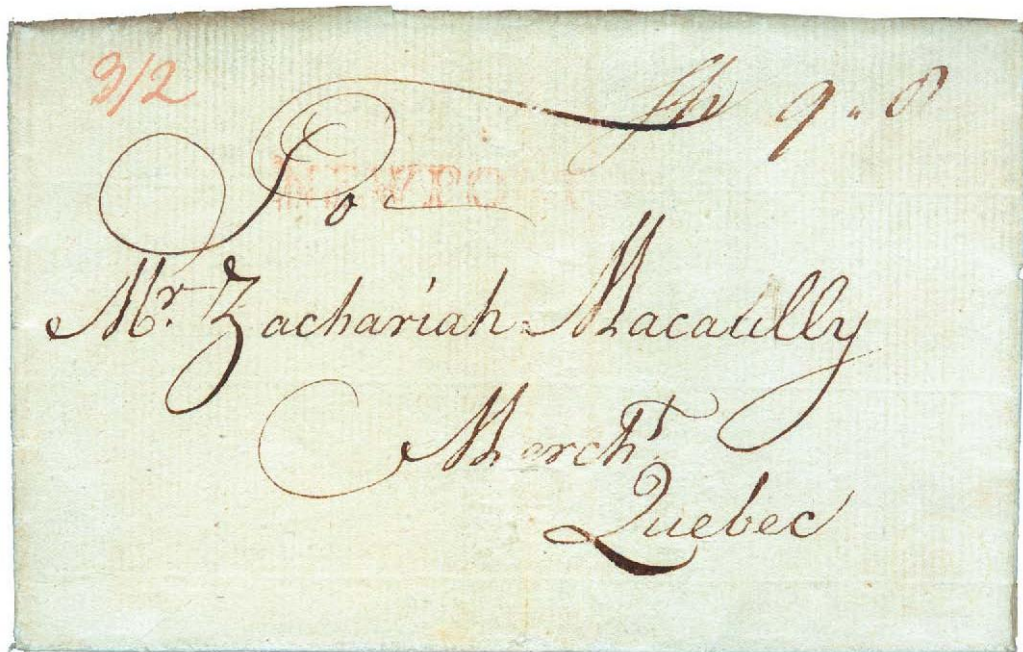 3/2
9 " 8
To
NEWPORT
Mr. Zachariah Macaully
Mercht.
Quebec